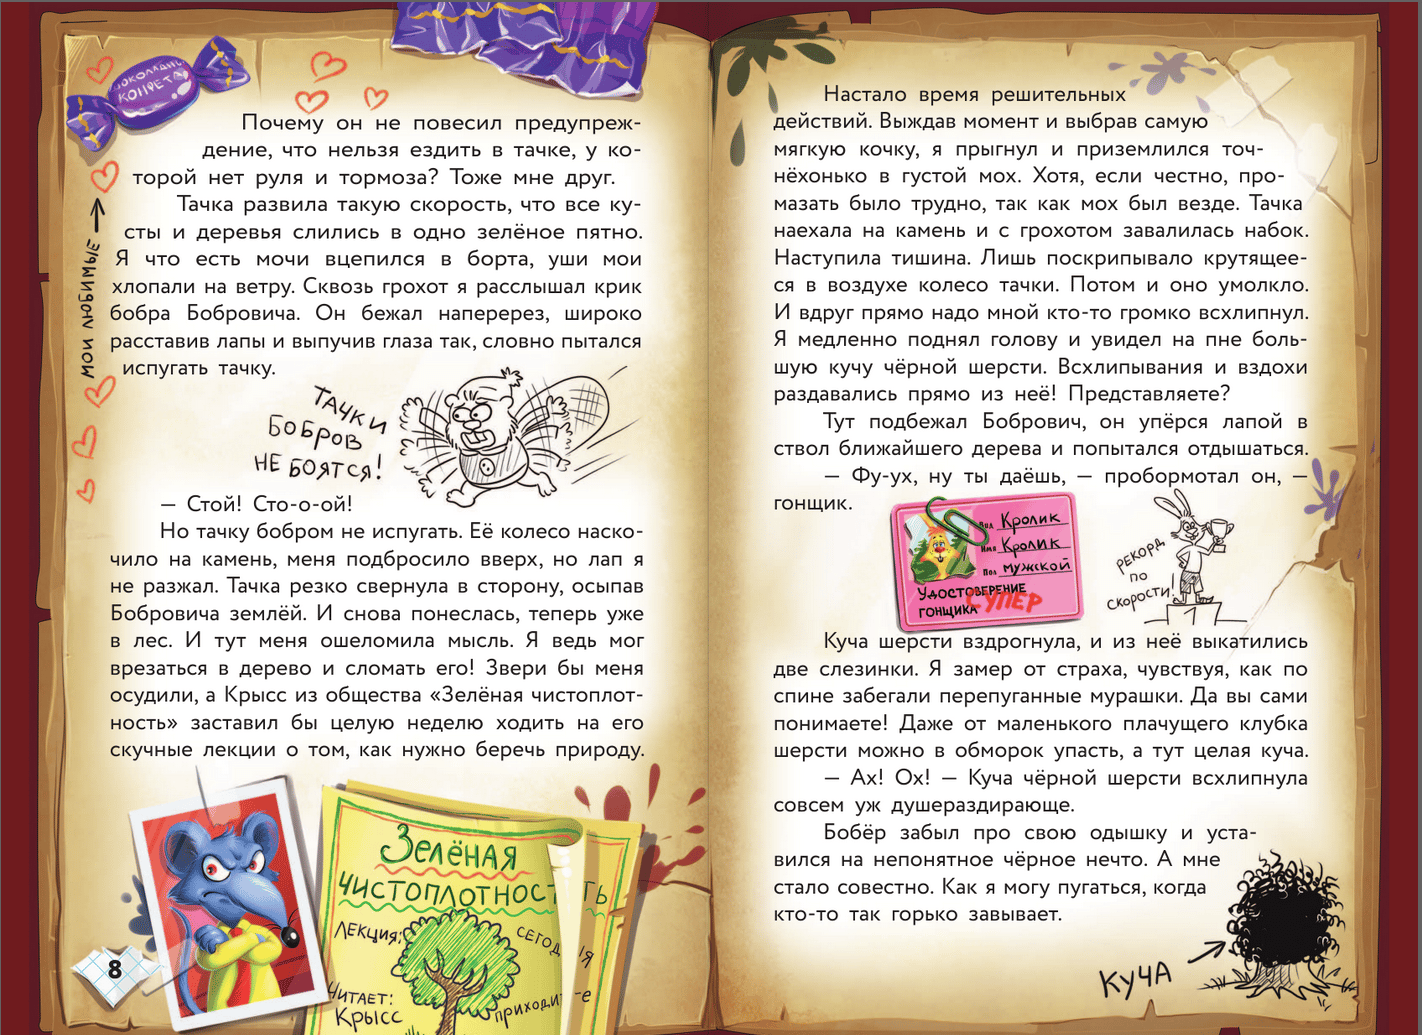 ШОКОЛАДНЫЕ
КОНФЕТЫ
Почему он не повесил предупреж-
дение, что нельзя ездить в тачке, у ко-
торой нет руля и тормоза? Тоже мне друг.
Тачка развила такую скорость, что все ку-
сты и деревья слились в одно зелёное пятно.
Я что есть мочи вцепился в борта, уши мои
хлопали на ветру. Сквозь грохот я расслышал крик
бобра Бобровича. Он бежал наперерез, широко
расставив лапы и выпучив глаза так, словно пытался
испугать тачку.
МОИ ЛЮБИМЫЕ
ТАЧКИ
БОБРОВ
НЕ БОЯТСЯ!
— Стой! Сто-о-ой!
Но тачку бобром не испугать. Её колесо наско-
чило на камень, меня подбросило вверх, но лап я
не разжал. Тачка резко свернула в сторону, осыпав
Бобровича землёй. И снова понеслась, теперь уже
в лес. И тут меня ошеломила мысль. Я ведь мог
врезаться в дерево и сломать его! Звери бы меня
осудили, а Крысс из общества «Зелёная чистоплот-
ность» заставил бы целую неделю ходить на его
скучные лекции о том, как нужно беречь природу.
Зелёная
чистоплотность
ЛЕКЦИЯ:
СЕГОДНЯ
ЧИТАЕТ:
Крысс
приходите
8
Настало время решительных
действий. Выждав момент и выбрав самую
мягкую кочку, я прыгнул и приземлился точ-
нёхонько в густой мох. Хотя, если честно, про-
мазать было трудно, так как мох был везде. Тачка
наехала на камень и с грохотом завалилась набок.
Наступила тишина. Лишь поскрипывало крутящее-
ся в воздухе колесо тачки. Потом и оно умолкло.
И вдруг прямо надо мной кто-то громко всхлипнул.
Я медленно поднял голову и увидел на пне боль-
шую кучу чёрной шерсти. Всхлипывания и вздохи
раздавались прямо из неё! Представляете?
Тут подбежал Бобрович, он упёрся лапой в
ствол ближайшего дерева и попытался отдышаться.
— Фу-ух, ну ты даёшь, — пробормотал он, —
гонщик.
Вид Кролик
Имя Кролик
Пол мужской
Удостоверение
гонщика СУПЕР
РЕКОРД
ПО
СКОРОСТИ!
1
Куча шерсти вздрогнула, и из неё выкатились
две слезинки. Я замер от страха, чувствуя, как по
спине забегали перепуганные мурашки. Да вы сами
понимаете! Даже от маленького плачущего клубка
шерсти можно в обморок упасть, а тут целая куча.
— Ах! Ох! — Куча чёрной шерсти всхлипнула
совсем уж душераздирающе.
Бобёр забыл про свою одышку и уста-
вился на непонятное чёрное нечто. А мне
стало совестно. Как я могу пугаться, когда
кто-то так горько завывает.
КУЧА